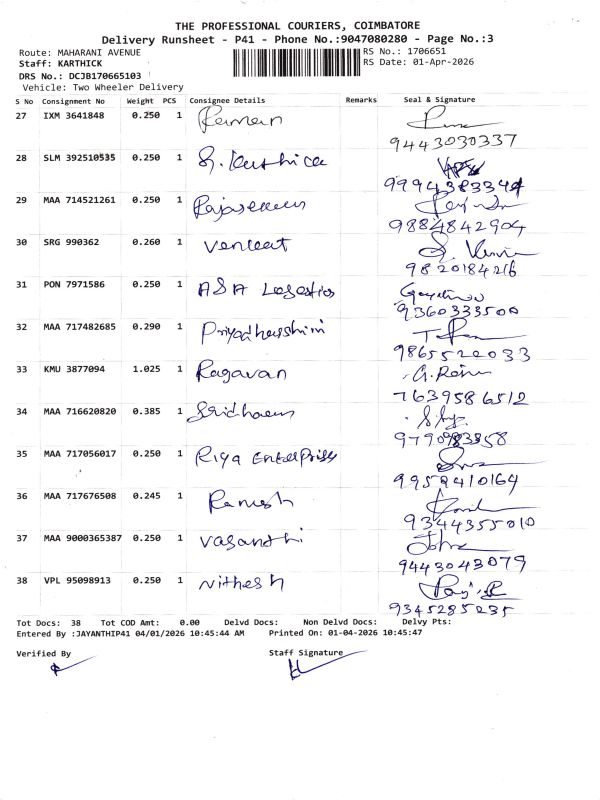 THE PROFESSIONAL COURIERS, COIMBATORE
Delivery Runsheet - P41 - Phone No.:9047080280 - Page No.:3
Route: MAHARANI AVENUE
RS No.: 1706651
Staff: KARTHICK
RS Date: 01-Apr-2026
DRS No.: DCJB170665103
Vehicle: Two Wheeler Delivery
S No Consignment No Weight PCS Consignee Details Remarks Seal & Signature
27 IXM 3641848 0.250 1 Raman
9443030337
28 SLM 392510535 0.250 1 S. Karthica
29 MAA 714521261 0.250 1
9884842904
30 SRG 990362 0.260 1 Venkat
9820184216
31 PON 7971586 0.250 1 A&A Logestics
9360333500
32 MAA 717482685 0.290 1 Priyadharshini
9865522033
33 KMU 3877094 1.025 1 Ragavan
7639586512
34 MAA 716620820 0.385 1 Sridharan
35 MAA 717056017 0.250 1 Riya Enterprises
9952410164
36 MAA 717676508 0.245 1 Ramesh
9344355010
37 MAA 9000365387 0.250 1 Vasanthi
9443043079
38 VPL 95098913 0.250 1 Nithesh
9345285235
Tot Docs: 38 Tot COD Amt: 0.00 Delvd Docs: Non Delvd Docs: Delvy Pts:
Entered By :JAYANTHIP41 04/01/2026 10:45:44 AM Printed On: 01-04-2026 10:45:47
Verified By Staff Signature